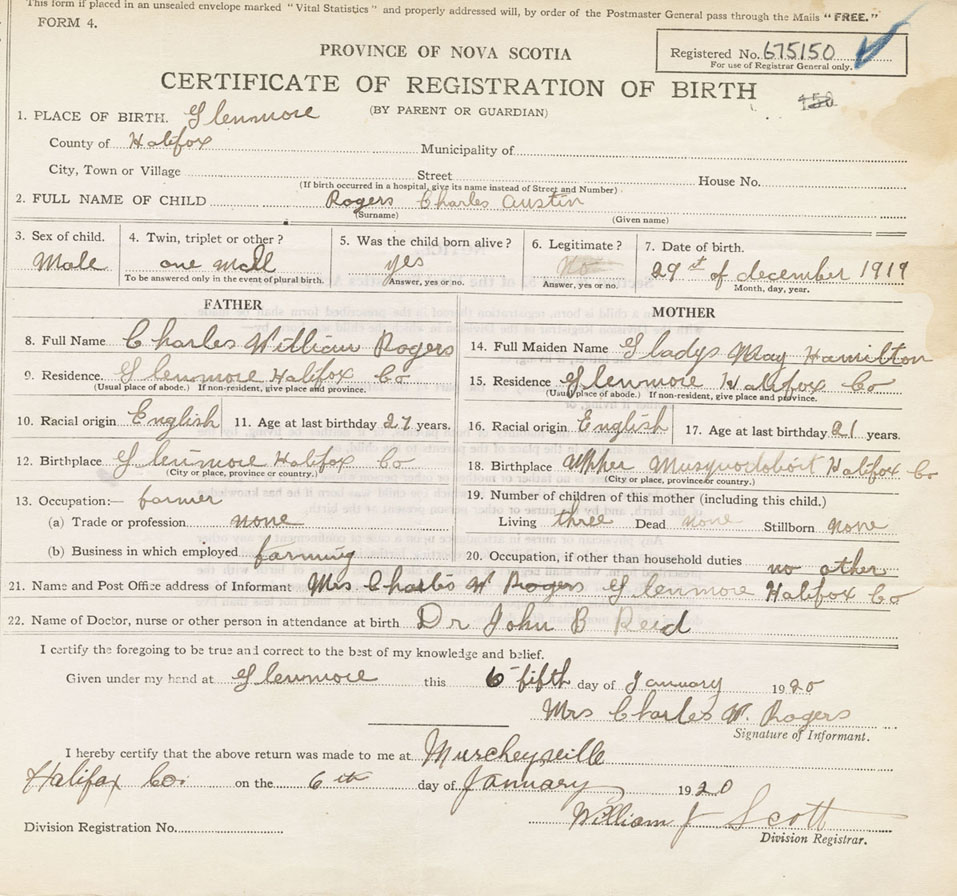 This form if placed in an unsealed envelope marked "Vital Statistics" and properly addressed will, by order of the Postmaster General pass through the Mails "FREE."
FORM 4.
PROVINCE OF NOVA SCOTIA
Registered No. 675150
For use of Registrar General only.
CERTIFICATE OF REGISTRATION OF BIRTH
150
(BY PARENT OR GUARDIAN)
1. PLACE OF BIRTH. Glenmore
County of Halifox Municipality of
City, Town or Village Street House No.
(If birth occurred in a hospital, give its name instead of Street and Number)
2. FULL NAME OF CHILD Rogers Charles Austin
(Surname) (Given name)
3. Sex of child. 4. Twin, triplet or other? 5. Was the child born alive? 6. Legitimate? 7. Date of birth.
Male one yes No 29st of december 1919
To be answered only in the event of plural birth. Answer, yes or no. Answer, yes or no. Month, day, year.
FATHER MOTHER
8. Full Name Charles William Rogers 14. Full Maiden Name Gladys May Hamilton
9. Residence. Glenmore Halifox Co 15. Residence Glenmore Halifox Co
(Usual place of abode.) If non-resident, give place and province. (Usual place of abode.) If non-resident, give place and province.
10. Racial origin English 11. Age at last birthday 27 years. 16. Racial origin English 17. Age at last birthday 21 years.
12. Birthplace Glenmore Halifox Co 18. Birthplace Upper Musquodoboit Halifox Co
(City or place, province or country.) (City or place, province or country.)
13. Occupation:— farmer 19. Number of children of this mother (including this child.)
(a) Trade or profession none Living three Dead none Stillborn none
(b) Business in which employed farming 20. Occupation, if other than household duties no other
21. Name and Post Office address of Informant Mrs Charles W Rogers Glenmore Halifox Co
22. Name of Doctor, nurse or other person in attendance at birth Dr John B Reid
I certify the foregoing to be true and correct to the best of my knowledge and belief.
Given under my hand at Glenmore this 6 fifth day of January 1920
Mrs Charles W. Rogers
Signature of Informant.
I hereby certify that the above return was made to me at Murcheyville
Halifax Co. on the 6th day of January 1920
William J Scott
Division Registrar.
Division Registration No.